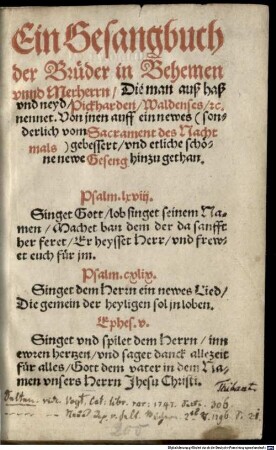 Ein Gesangbuch
der Brüder in Behemen
vnnd Merherrn / Die man auß haß
vnd neyd / Pickharden / Waldenses / ꝛc.
nennet. Von jnen auff ein newes (son-
derlich vom Sacrament des Nacht
mals) gebessert / vnd etliche schö-
ne newe Geseng hinzu gethan.
Psalm. lxviij.
Singet Gott / lobsinget seinem Na-
men / Machet ban dem der da sanfft
her feret / Er heysset Herr / vnd frew-
et euch für jm.
Psalm. cxlix.
Singet dem Herrn ein newes Lied /
Die gemein der heyligen sol jn loben.
Ephes. v.
Singet vnd spilet dem Herrn / inn
ewren hertzen / vnd saget danck allezeit
für alles / Gott dem vater in dem Na-
men vnsers Herrn Jhesu Christi.
vid. Vogt Cat. libr. rar. 1747. 306.